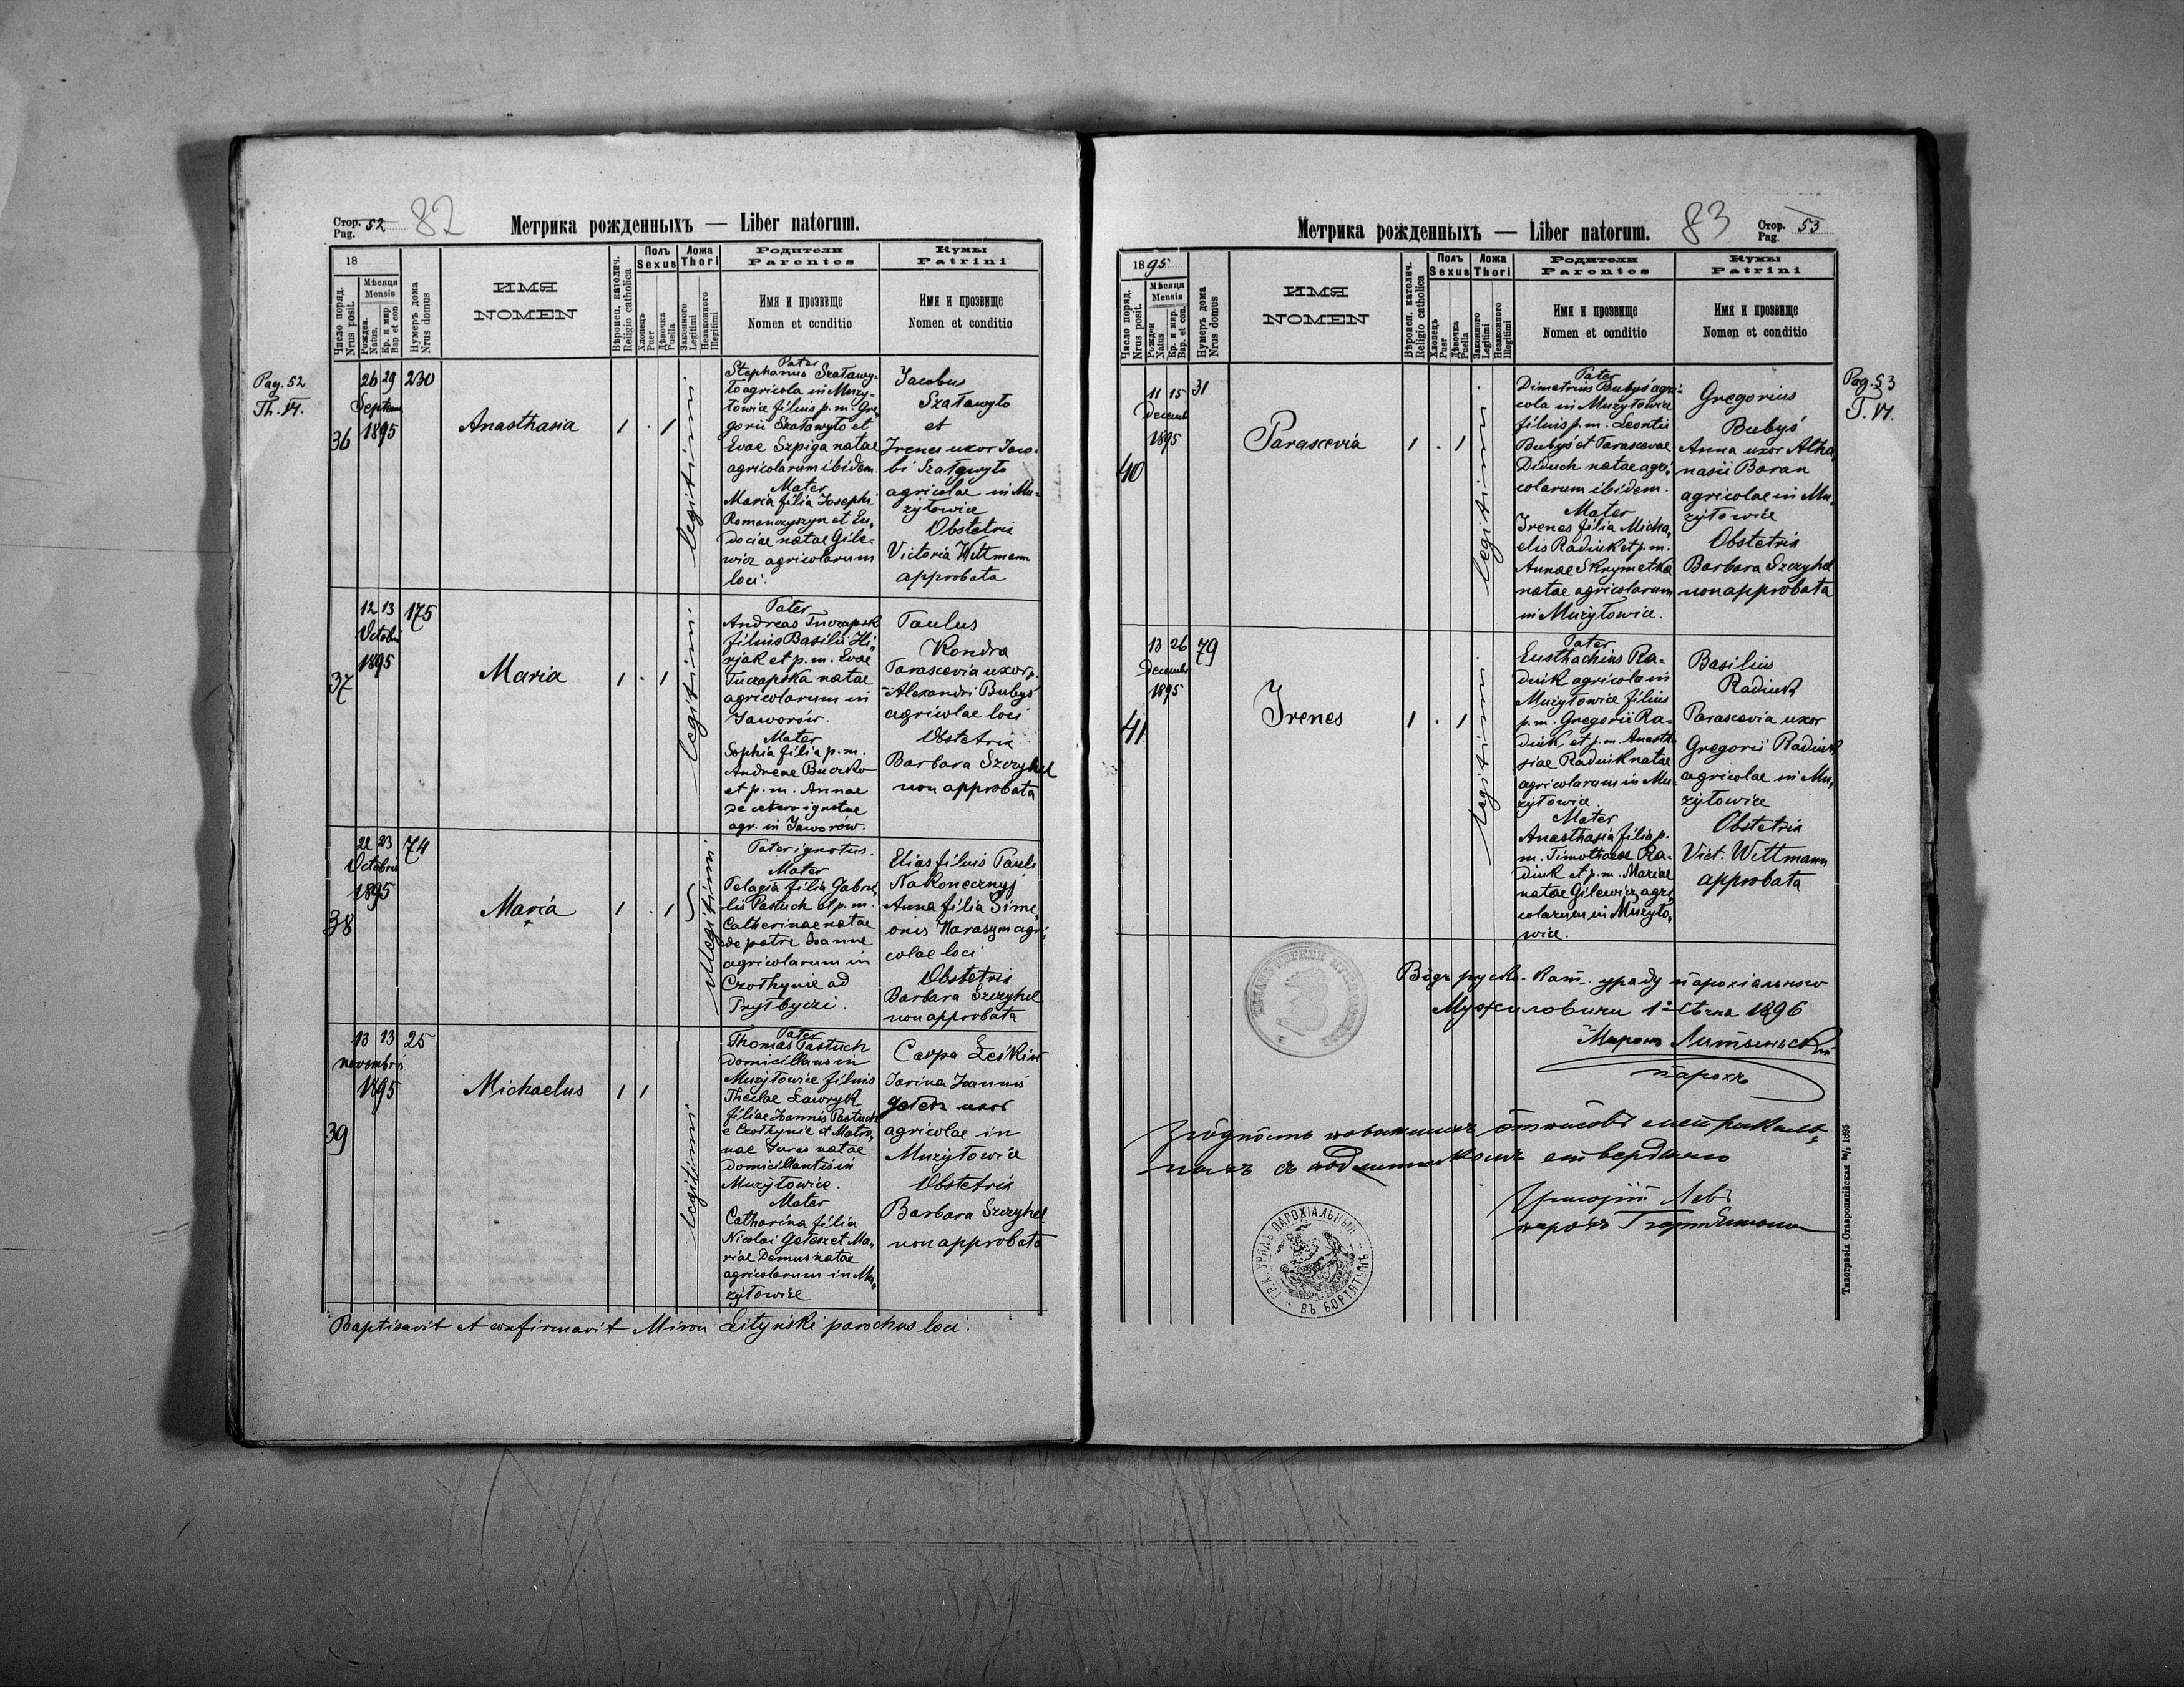 Стор. 52
Pag.
82
Метрика рожденныхъ — Liber natorum.
18
Число поряд.
Nrus posit.
Мѣсяця
Mensis
Рожден.
Natus.
Кр. и мир
Bap et con
Нумеръ дома
Nrus domus
ИМЯ
NOMEN
Вѣроисп. католич.
Religio catholica
Полъ
Sexus
Хлопецъ
Puer
Дѣвочка
Puella
Ложа
Thori
Законного
Legitimi
Незаконного
Illegitimi
Родители
Parentes
Имя и прозвище
Nomen et conditio
Кумы
Patrini
Имя и прозвище
Nomen et conditio
Pag. 52
Th. VI.
36
26 29
Septem
1895
230
Anasthasia
1 . 1
legitimi
Pater
Stephanus Szaławy-
ło agricola in Muzy-
łowice filius p. m. Gre
gorii Szaławyło et
Evae Szpiga natae
agricolarum ibidem.
Mater
Maria filia Josephi
Romanczyszyn et Eu-
dociae natae Gile-
wicz agricolarum
loci.
Jacobus
Szaławyło
et
Irenes uxor Jaco-
bi Szaławyło
agricolae in Mu-
zyłowice
Obstetrix
Victoria Wittmann
approbata
37
12 13
Octobri
1895
175
Maria
1 . 1
legitimi
Pater
Andreas Tuczapsk
filius Basilii Hi-
rjak et p. m. Evae
Tuczapska natae
agricolarum in
Jaworów.
Mater
Sophia filia p. m.
Andreae Buczko
et p. m. Annae
de cetero ignotae
agr. in Jaworów.
Paulus
Kondra
Parascevia uxor p.
m Alexandri Bubyś
agricolae loci
Obstetrix
Barbara Szczyhel
non approbata
38
22 23
Octobri
1895
74
Maria
1 . 1
illegitimi
Pater ignotus.
Mater
Pelagia filia Gabrie-
lis Pastuch et p. m.
Catherinae natae
de patre Joanne
agricolarum in
Czołhynie ad
Przyłbyczi.
Elias filius Pauli
Nakonecznyj
Anna filia Sime-
onis Harasym agri-
colae loci
Obstetrix
Barbara Szczyhel
non approbata
39
13 13
novembris
1895
25
Michaelus
1 1
legitimi
Pater
Thomas Pastuch
domicillans in
Muzyłowice filius
Theclae Ławryk
filiae Joannis Pastuch
e Czołhynie et Matro-
nae Jures natae
domicillantis in
Muzyłowice.
Mater
Catharina filia
Nicolai Gelesz et Ma-
riae Demus natae
agricolarum in Mu-
zyłowice
Carpa Leśkiw
Jarina Joannis
uxor
agricolae in
Muzyłowice
Obstetrix
Barbara Szczyhel
non approbata
Baptisavit et confirmavit Miron Lityński parochus loci.
Метрика рожденныхъ — Liber natorum.
83
Стор. 53
Pag.
1895
Число поряд.
Nrus posit.
Мѣсяця
Mensis
Рожден
Natus
Кр. и мир.
Bap. et con.
Нумеръ дома
Nrus domus
ИМЯ
NOMEN
Вѣроисп. католич.
Religio catholica
Полъ
Sexus
Хлопецъ
Puer
Дѣвочка
Puella
Ложа
Thori
Законного
Legitimi
Незаконного
Illegitimi
Родители
Parentes
Имя и прозвище
Nomen et conditio
Кумы
Patrini
Имя и прозвище
Nomen et conditio
Pag. 53
T. VI.
40
11 15
Decemb
1895
31
Parascevia
1 . 1
legitimi
Pater
Dimetrius Bubyś agri-
cola in Muzyłowice
filius p. m. Leontii
Bubyś et Parascevae
Diduch natae agri-
colarum ibidem.
Mater
Irenes filia Micha-
elis Radiuk et p. m.
Annae Skrymetka
natae agricolarum
in Muzyłowice.
Gregorius
Bubyś
Anna uxor Atha-
nasii Baran
agricolae in Mu-
zyłowice
Obstetrix
Barbara Szczyhel
non approbata
41
13 26
Decembr
1895
79
Irenes
1 . 1
legitimi
Pater
Eusthachius Ra-
diuk agricola in
Muzyłowice filius
p. m. Gregorii Ra-
diuk et p. m. Anastha
siae Radiuk natae
agricolarum in Mu-
zyłowice.
Mater
Anasthasia filia p.
m. Timothaeae Ra-
diuk et p. m. Mariae
natae Gilewicz agri-
colarum in Muzyło-
wice.
Basilius
Radiuk
Parascevia uxor
Gregorii Radiuk
agricolae in Mu-
zyłowice
Obstetrix
Vict. Wittmann
approbata
Видъ руско-кат. уряду парохіального
Мужиловичи 1 Сѣчня 1896
Миронъ Литыньскій
парохъ
отписôвъ метрикаль-
ныхъ съ подлинникомъ стверджаю
Григорій Левъ
парохъ
ГР. К. УРЯДЪ ПАРОХІАЛЬНЫЙ
ВЪ БОРТЯТИНѢ
Типографія Ставропигійская 1895